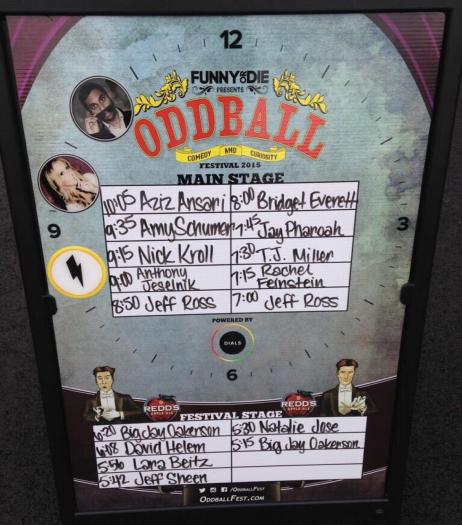 12
FUNNY OR DIE
PRESENTS
ODDBALL
COMEDY AND CURIOSITY
FESTIVAL 2015
MAIN STAGE
10:05 Aziz Ansari 8:00 Bridget Everett
9:35 Amy Schumer 7:45 Jay Pharoah
9:15 Nick Kroll 7:30 T.J. Miller
9:00 Anthony Jeselnik 7:15 Rachel Feinstein
8:50 Jeff Ross 7:00 Jeff Ross
9
3
POWERED BY
DIALS
6
REDD'S
APPLE ALE
REDD'S
APPLE ALE
FESTIVAL STAGE
6:20 Big Jay Oakerson 5:30 Natalie Jose
6:08 David Helem 5:15 Big Jay Oakerson
5:56 Lana Beitz
5:42 Jeff Sheen
/ODDBALLFEST
ODDBALLFEST.COM